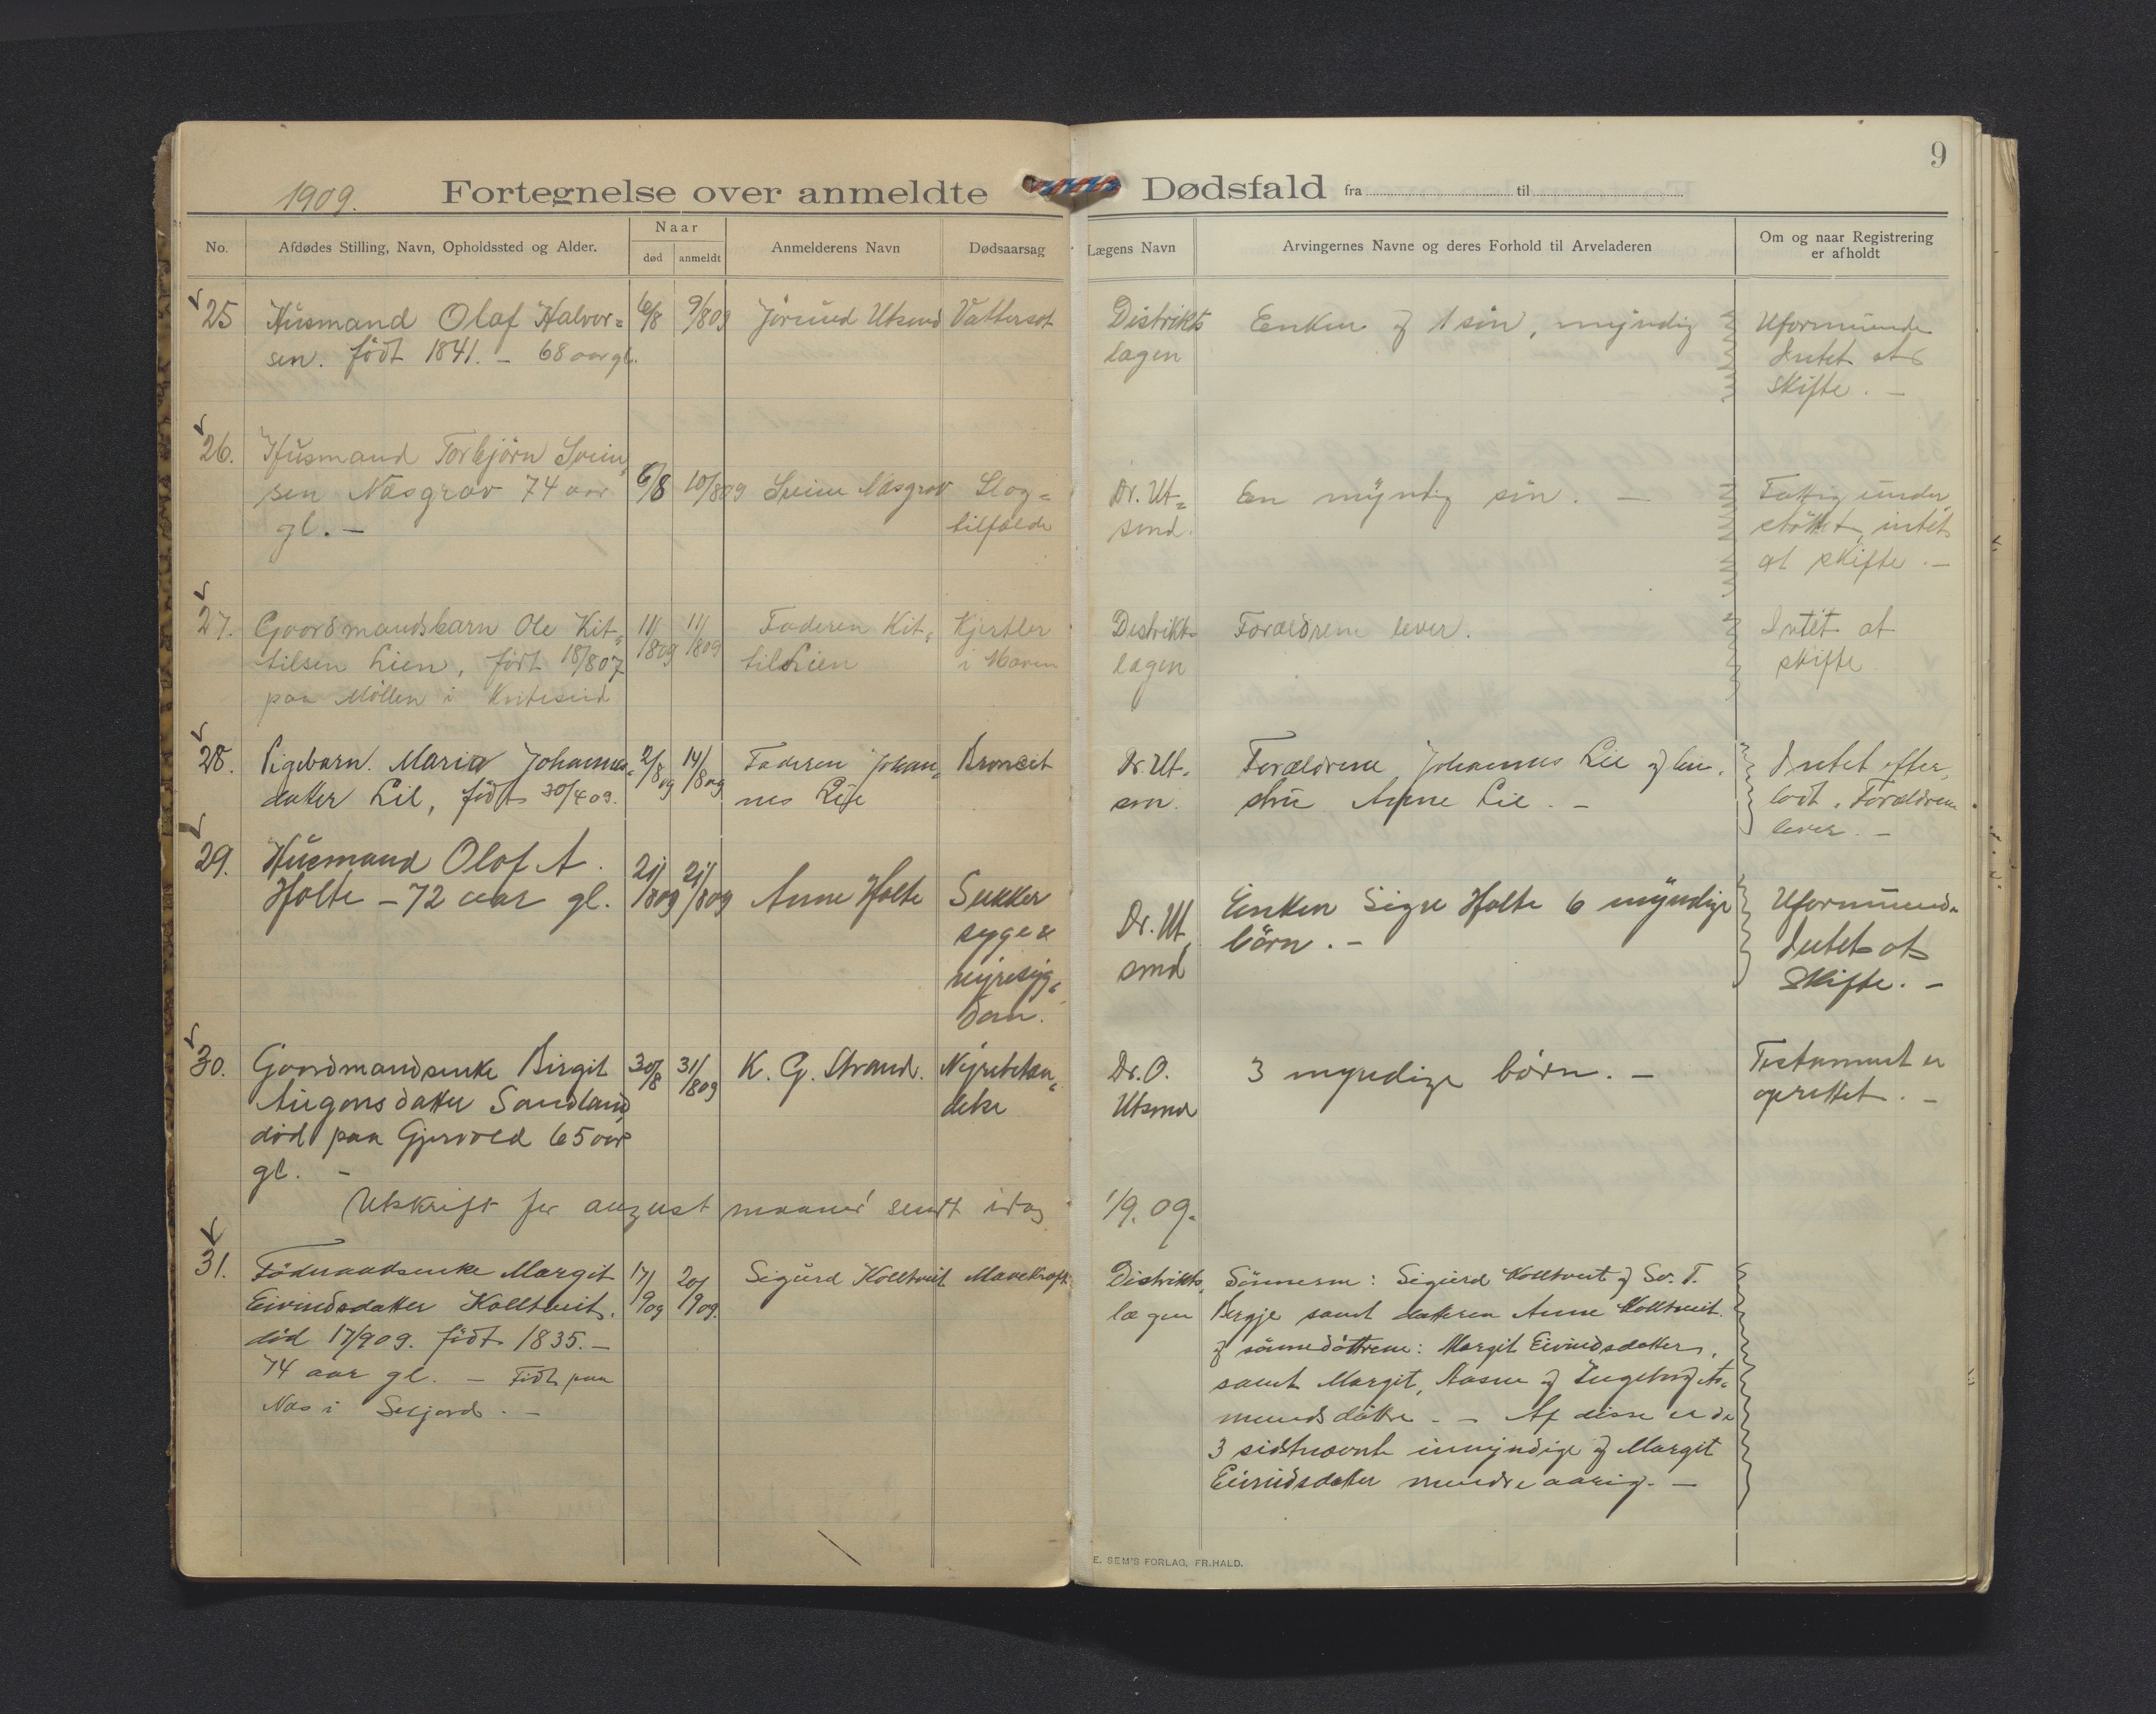 9
1909.
Fortegnelse over anmeldte Dødsfald fra til
No.
Afdødes Stilling, Navn, Opholdssted og Alder.
Naar
død
anmeldt
Anmelderens Navn
Dødsaarsag
Lægens Navn
Arvingernes Navne og deres Forhold til Arveladeren
Om og naar Registrering
er afholdt
25
Husmand Olaf Halvor=
sen. født 1841. - 68 aar gl.
6/8
9/8 09
Jørund Utsond
Vattersot
Distrikts
lægen
Enken og 1 søn, myndig
Uformuende
Intet at
skifte. -
26.
Husmand Torbjørn Svein
sen Næsgrav 74 aar
gl. -
6/8
10/8 09
Sveinu Næsgrav
Slag=
tilfælde
Dr. Ut=
sond.
En myndig søn. -
Fattig under
støttet, intet
at skifte. -
27.
Gaardmandsbarn Ole Kit=
tilsen Lien, født 18/8 07
paa Møllen i Kviteseid
11/8 09
11/8 09
Faderen Kit=
til Lien
Kjertler
i Maven
Distrikts
lægen
Forældrene lever.
Intet at
skifte
28.
Pigebarn. Maria Johannes=
datter Lie, født 30/4 09.
2/8 09
14/8 09
Faderen Johan=
nes Lie
Broncit
Dr. Ut=
son.
Forældrene Johannes Lie og hu=
stru Anne Lie. -
Intet efter
ladt. Forældrene
lever. -
29.
Husmand Olaf A.
Holte - 72 aar gl.
21/8 09
21/8 09
Anne Holte
Sukker
syge &
nyresyg=
dom.
Dr. Ut
sond
Enken Signe Holte 6 myndige
børn. -
Uformuend.
Intet at
skifte. -
30.
Gaardmandsenke Birgit
Augonsdatter Sandland
død paa Gjervold 65 aar
gl. -
30/8
31/8 09
K. G. Strand.
Nyrebetæn=
delse
Dr. O.
Utsond
3 myndige børn. -
Testament er
oprettet. -
Utskrift for august maaned sendt idag 1/9. 09.
31.
Födraadsenke Margit
Eivindsdatter Kolltveit.
død 17/9 09. født 1835. -
74 aar gl. - Født paa
Næs i Seljord. -
17/9 09
20/9 09.
Sigurd Kolltveit
Mavekræft
Distrikts
lægen
Sønnerne: Sigurd Kolltveit og Sv. T.
Bergje samt datteren Anne Kolltveit.
og sønnedøttrene: Margit Eivindsdatter,
samt Margit, Aasne og Ingeborg As=
mundsdøttre. - Af disse er de
3 sidstnævnte umyndige og Margit
Eivindsdatter mindreaarig. -
E. SEM'S FORLAG, FR.HALD.